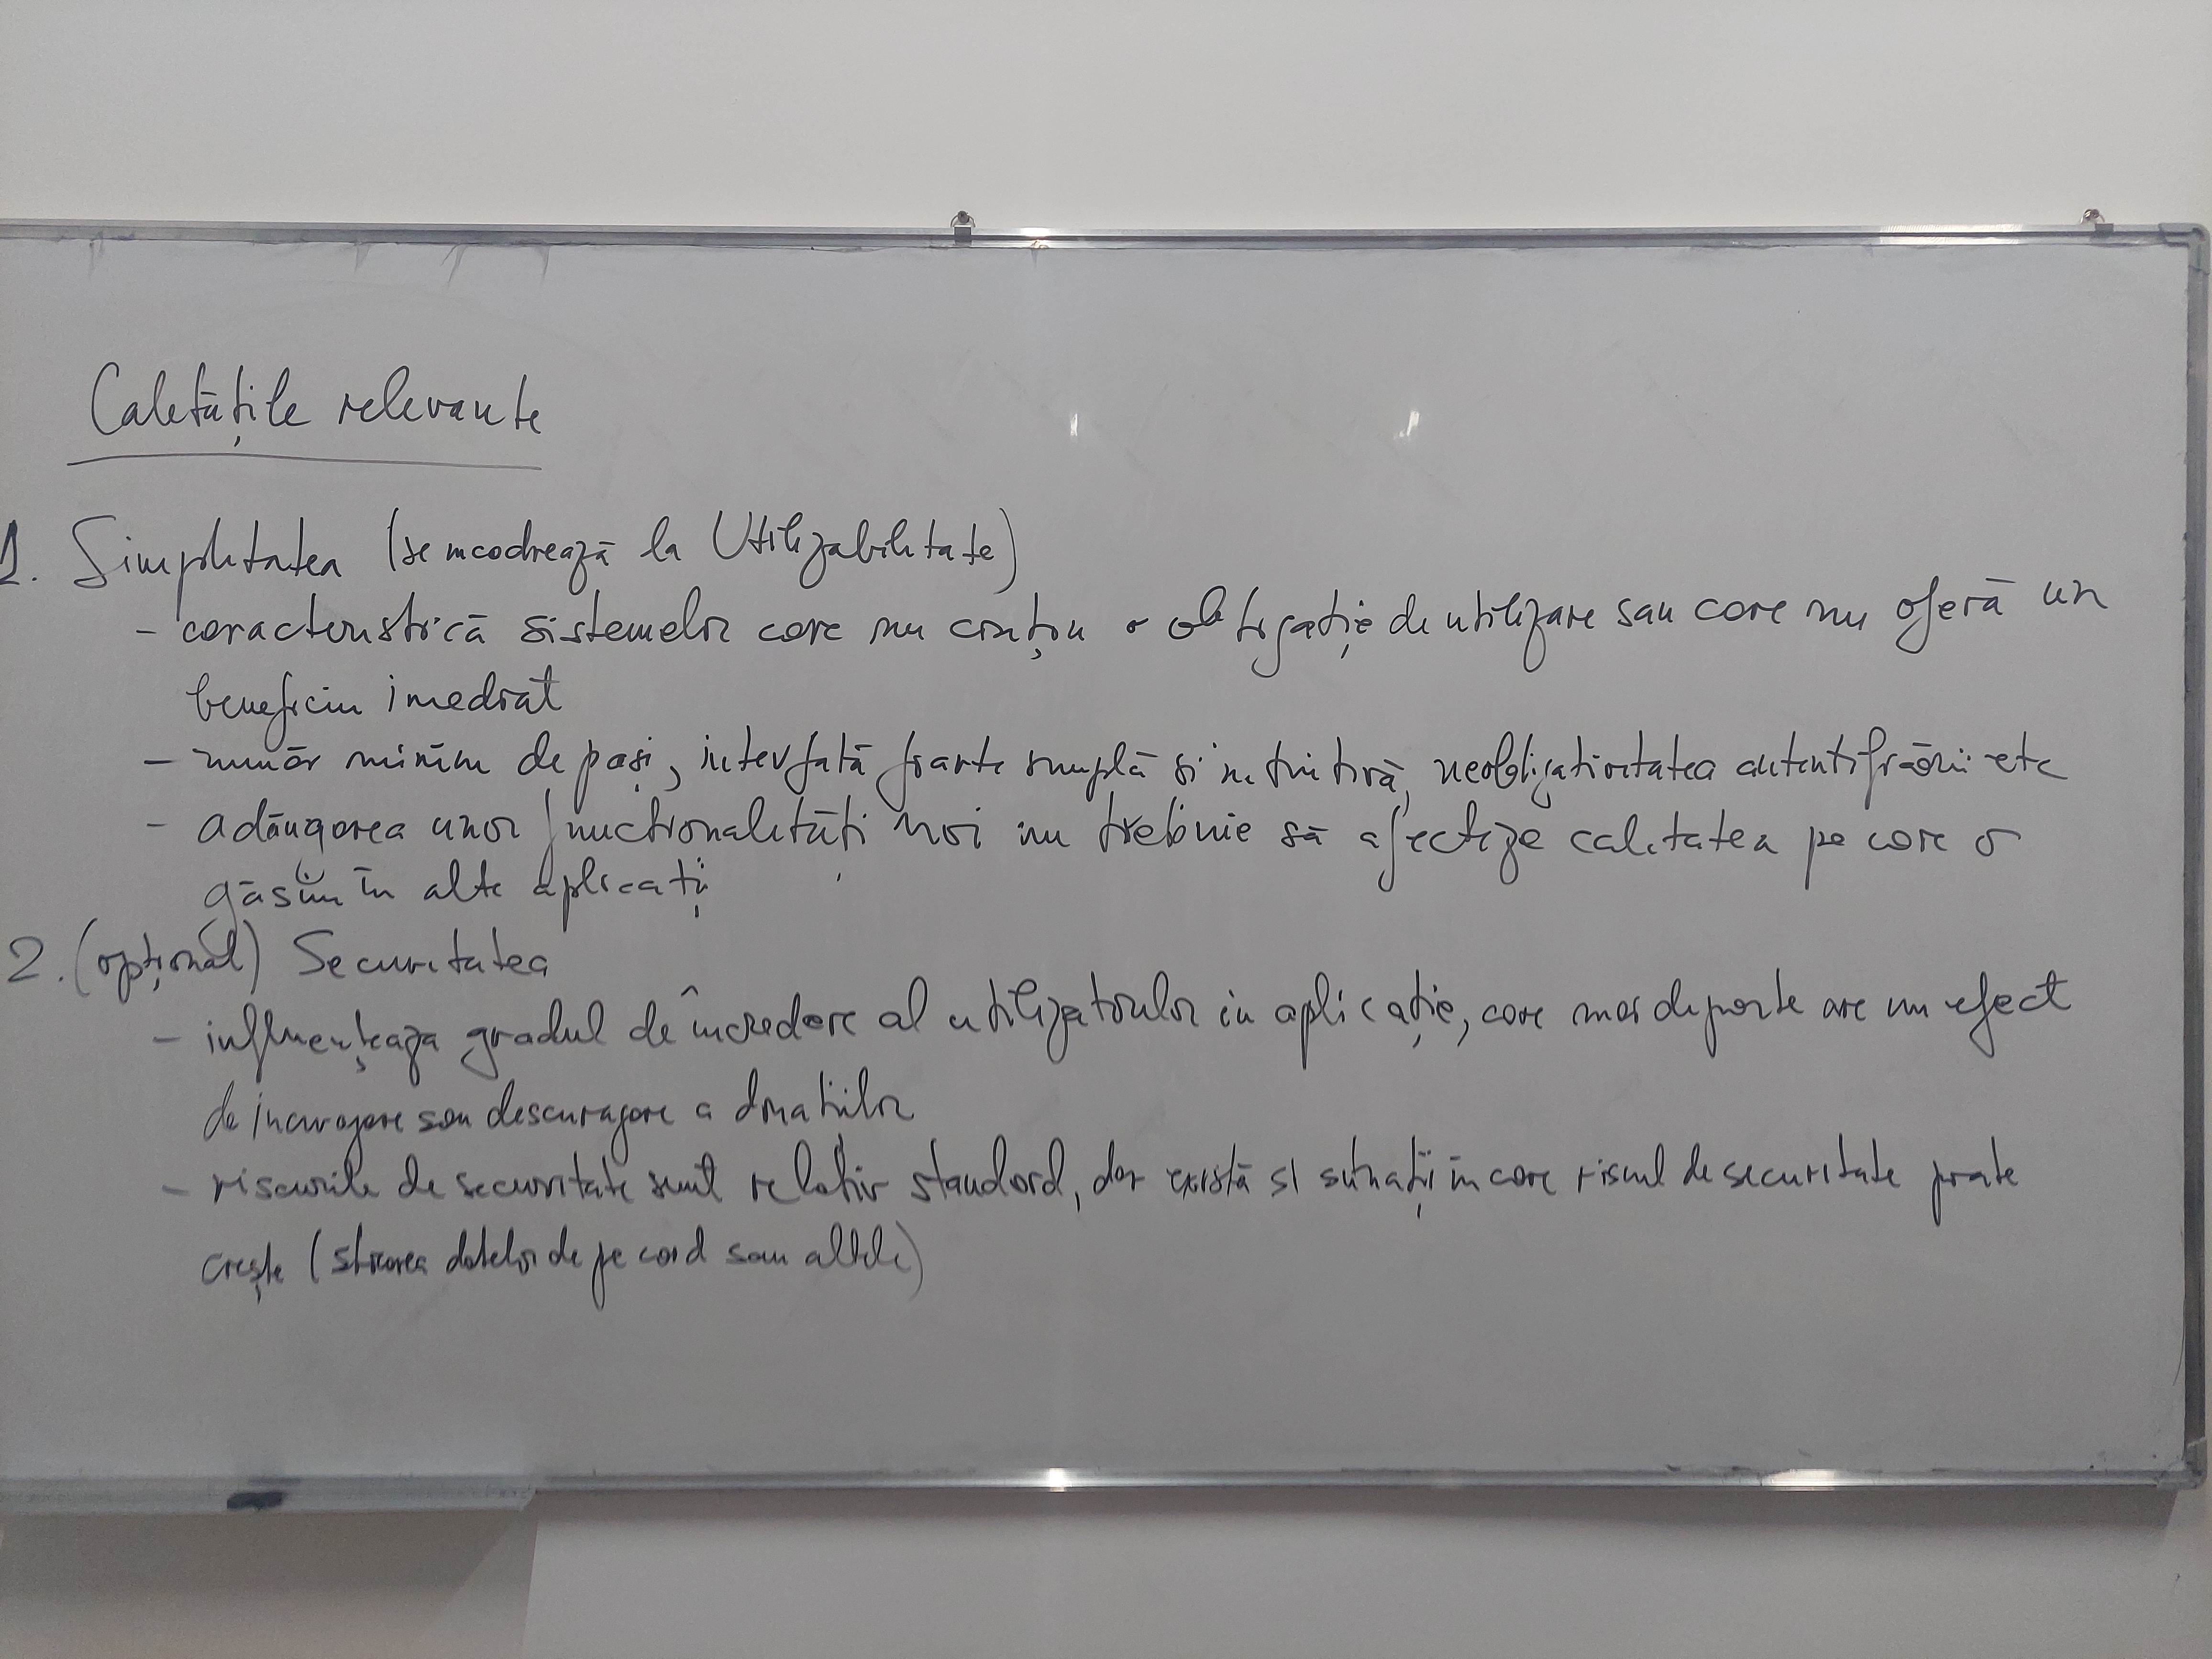 Calitățile relevante
1. Simplitatea (se încadrează la Utilizabilitate)
- caracteristică sistemelor care nu conțin o obligație de utilizare sau care nu oferă un
beneficiu imediat
- număr minim de pași, interfață foarte simplă si intuitivă, neobligativitatea autentificării etc
- adăugarea unor funcționalități noi nu trebuie să afecteze calitatea pe care o
găsim în alte aplicații
2. (opțional) Securitatea
- influențeaza gradul de încredere al utilizatorilor in aplicație, care mai departe are un efect
de incurajare sau descurajare a donatiilor
- riscurile de securitate sunt relativ standard, dar există si situații in care riscul de securitate poate
crește (stocarea datelor de pe card sau altele)